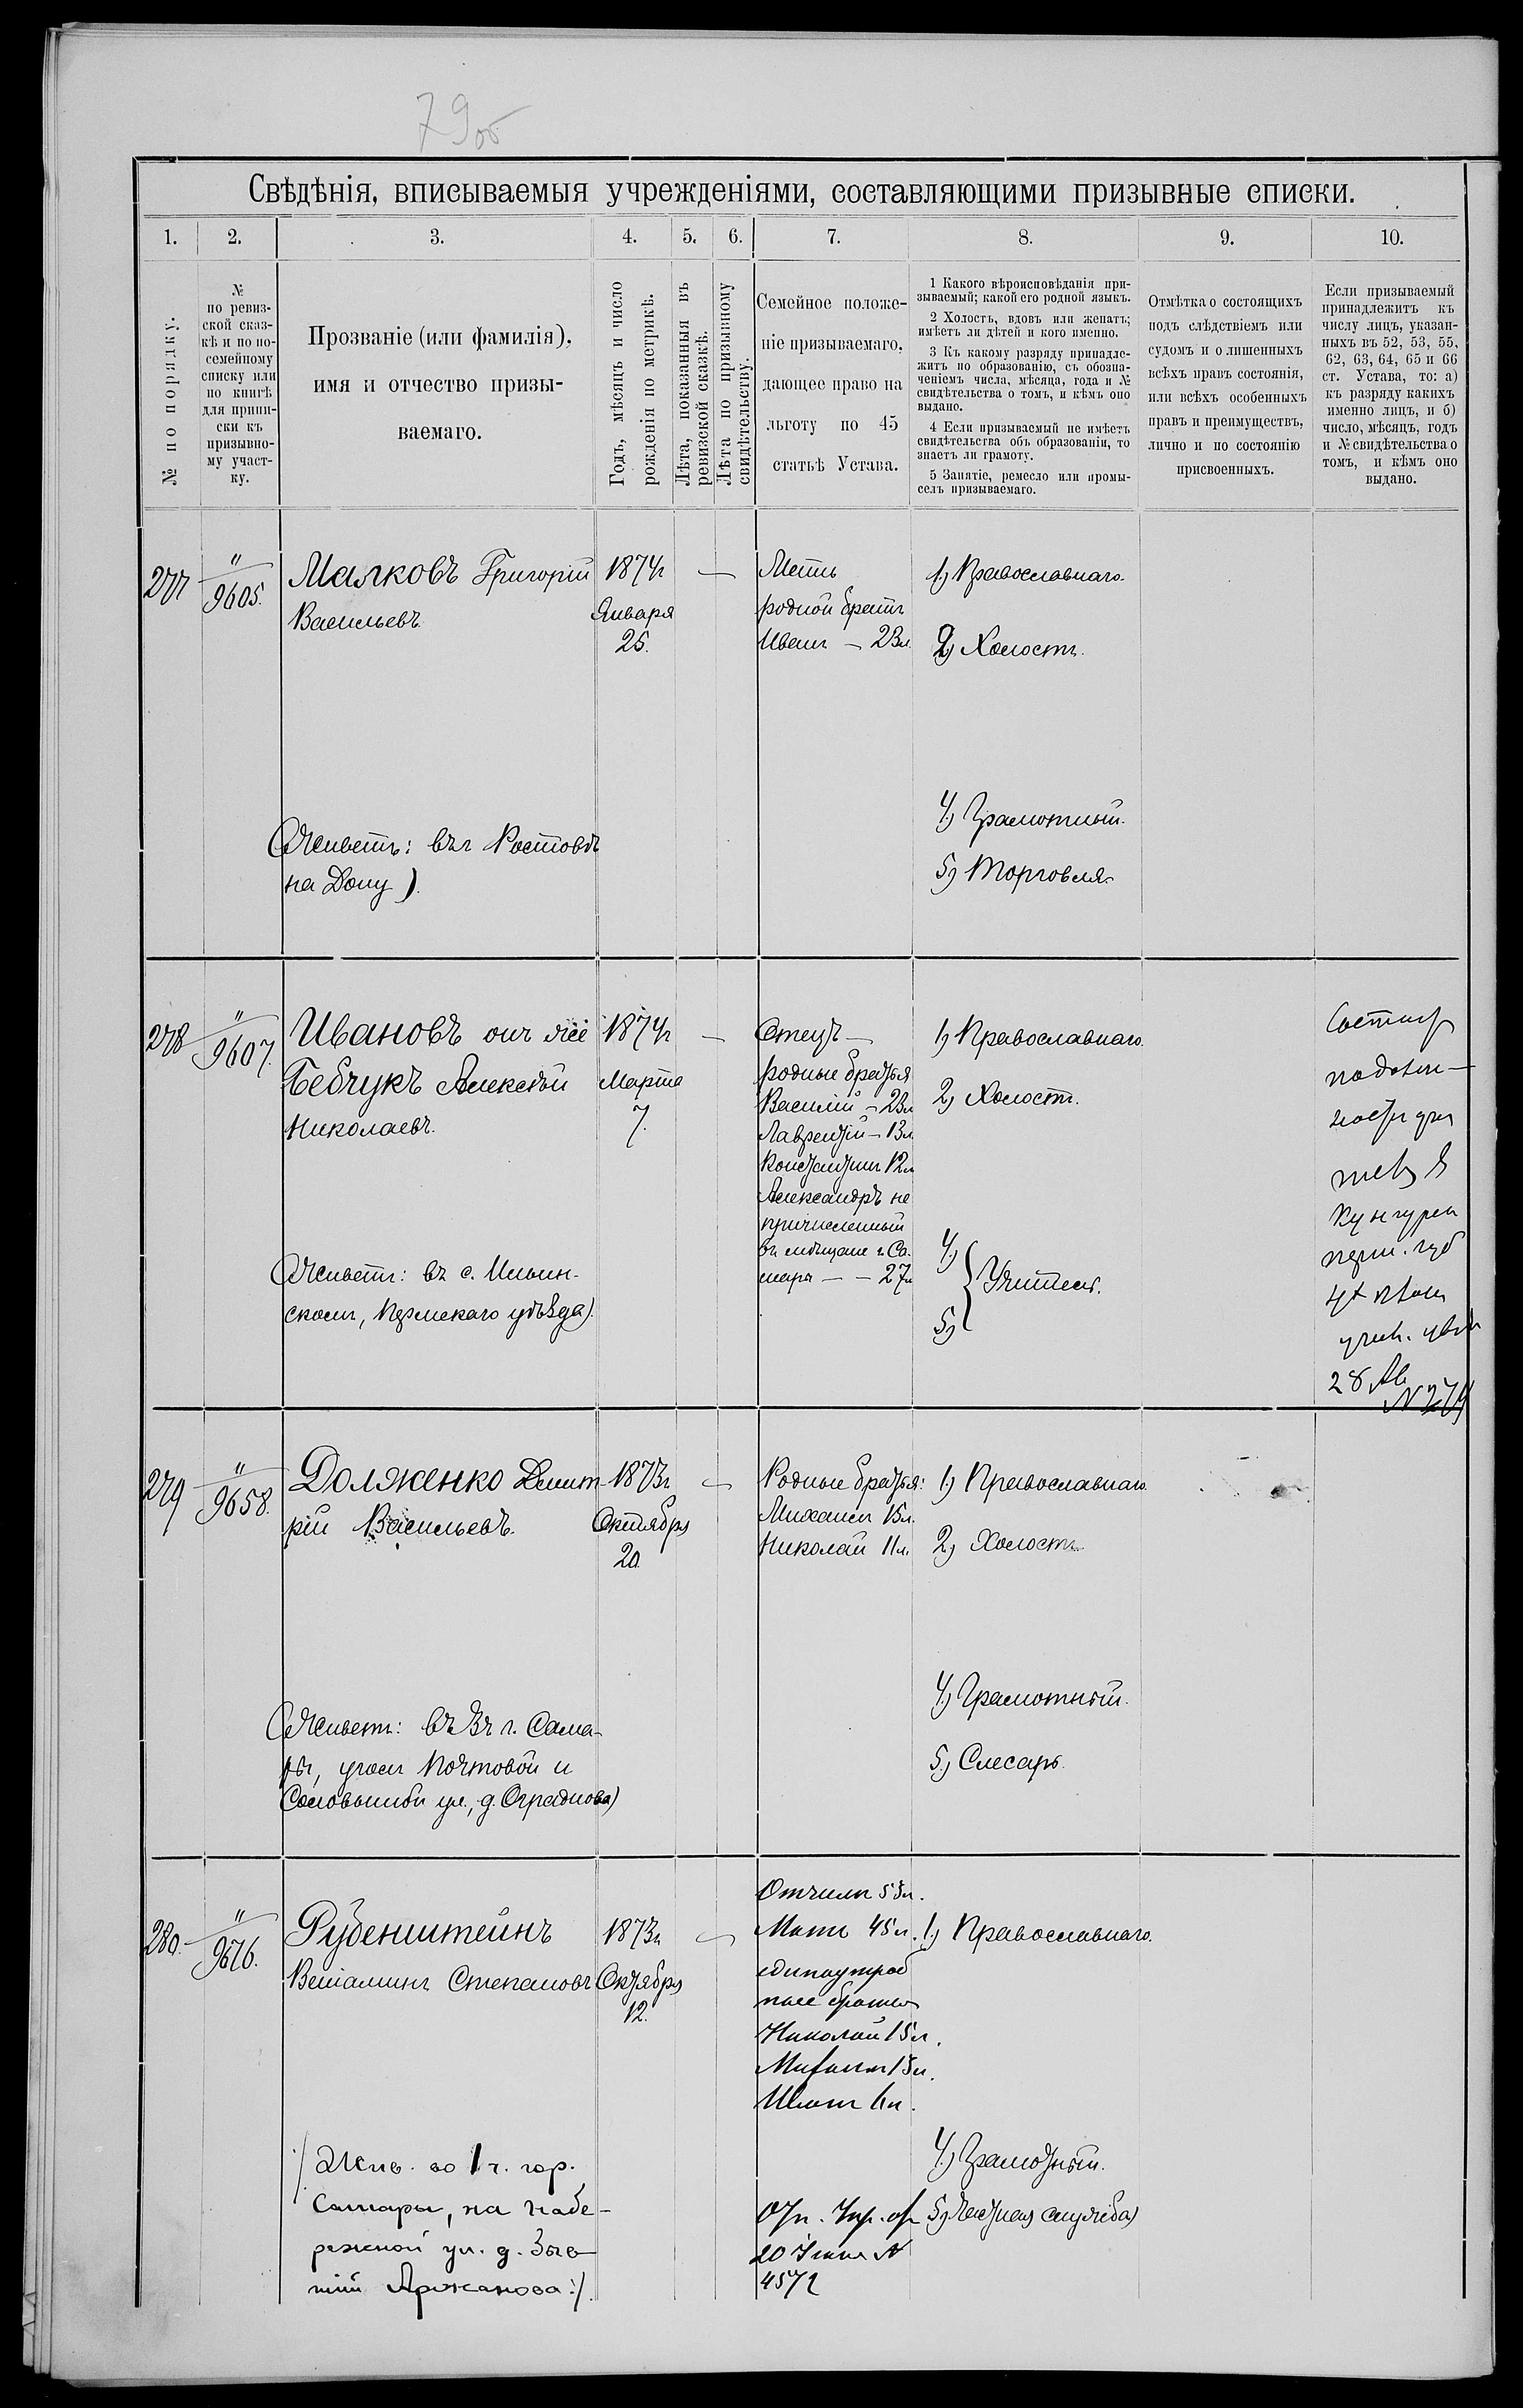 79 об
Свѣдѣнія, вписываемыя учрежденіями, составляющими призывные списки.
1. 2. 3. 4. 5. 6. 7. 8. 9. 10.
№ по порядку.
№
по ревиз-
ской сказ-
кѣ и по по-
семейному
списку или
по книгѣ
для припи-
ски къ
призывно-
му участ-
ку.
Прозваніе (или фамилія),
имя и отчество призы-
ваемаго.
Годъ, мѣсяцъ и число
рожденія по метрикѣ.
Лѣта, показанныя въ
ревизской сказкѣ.
Лѣта по призывному
свидѣтельству.
Семейное положе-
ніе призываемаго,
дающее право на
льготу по 45
статьѣ Устава.
1 Какого вѣроисповѣданія при-
зываемый; какой его родной языкъ.
2 Холостъ, вдовъ или женатъ;
имѣетъ ли дѣтей и кого именно.
3 Къ какому разряду принадле-
житъ по образованію, съ обозна-
ченіемъ числа, мѣсяца, года и №
свидѣтельства о томъ, и кѣмъ оно
выдано.
4 Если призываемый не имѣетъ
свидѣтельства объ образованіи, то
знаетъ ли грамоту.
5 Занятіе, ремесло или промы-
селъ призываемаго.
Отмѣтка о состоящихъ
подъ слѣдствіемъ или
судомъ и о лишенныхъ
всѣхъ правъ состоянія,
или всѣхъ особенныхъ
правъ и преимуществъ,
лично и по состоянію
присвоенныхъ.
Если призываемый
принадлежитъ къ
числу лицъ, указан-
ныхъ въ 52, 53, 55,
62, 63, 64, 65 и 66
ст. Устава, то: а)
къ разряду какихъ
именно лицъ, и б)
число, мѣсяцъ, годъ
и № свидѣтельства о
томъ, и кѣмъ оно
выдано.
277
"
9605.
Маяковъ Григорій
Васильевъ.
(Живетъ: въ г Ростовѣ
на Дону).
1874г
Января
25.
—
Мать
родной братъ
Иванъ — 23л.
1) Православнаго.
2) Холостъ.
4) Грамотный.
5) Торговля.
278
"
9607.
Ивановъ онъ же
Бебчукъ Алексѣй
Николаевъ.
(Живетъ: въ с. Ильин-
скомъ, Пермскаго уѣзда).
1874г
Марта
7.
—
Отецъ —
родные братья
Василій — 23л
Лаврентій — 13л
Константинъ 12л
Александръ не
причисленный
въ мѣщане г. Са-
мары — — 27л
1) Православнаго.
2) Холостъ.
4)
5)
Учитель.
Состоит
въ
Кунгурск
перм. губ
28
№ 274
279
"
9658.
Долженко Дмит-
рій Васильевъ.
(Живетъ: въ 3ч г. Сама-
ры, уголъ Почтовой и
Соловьиной ул., д. Ограднова)
1873г
Октября
20.
—
Родные братья:
Михаилъ 15л.
Николай 11л.
1) Православнаго.
2) Холостъ.
4) Грамотный.
5) Слесарь.
280.
"
9676.
Рубенштейнъ
Веніаминъ Степановъ
/: Жив. во 1 ч. гор.
Самары, на набе-
режной ул. д. Быв-
шій Аржанова :/.
1873г
Октября
12.
—
Отчимъ 55л.
Мать 45л.
единоутроб
ные братья
Николай 15л.
Михаилъ 13л.
Игнат 6л.
20 Іюня №
4572
1) Православнаго.
4) Грамотный.
5) Частная служба)